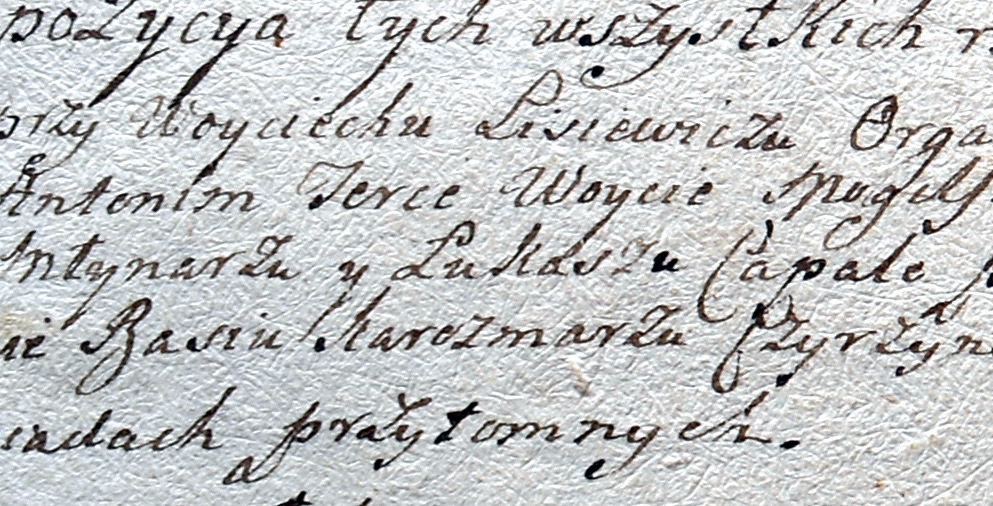 pozycya tych wszystkich
przy Woyciechu Lisiewiczu Orga
Antonim Jerce Woycie Mogil
Młynarzu y Łukaszu Capale
ie Basiu Karczmarzu Czyrzyn
iadach przytomnych.